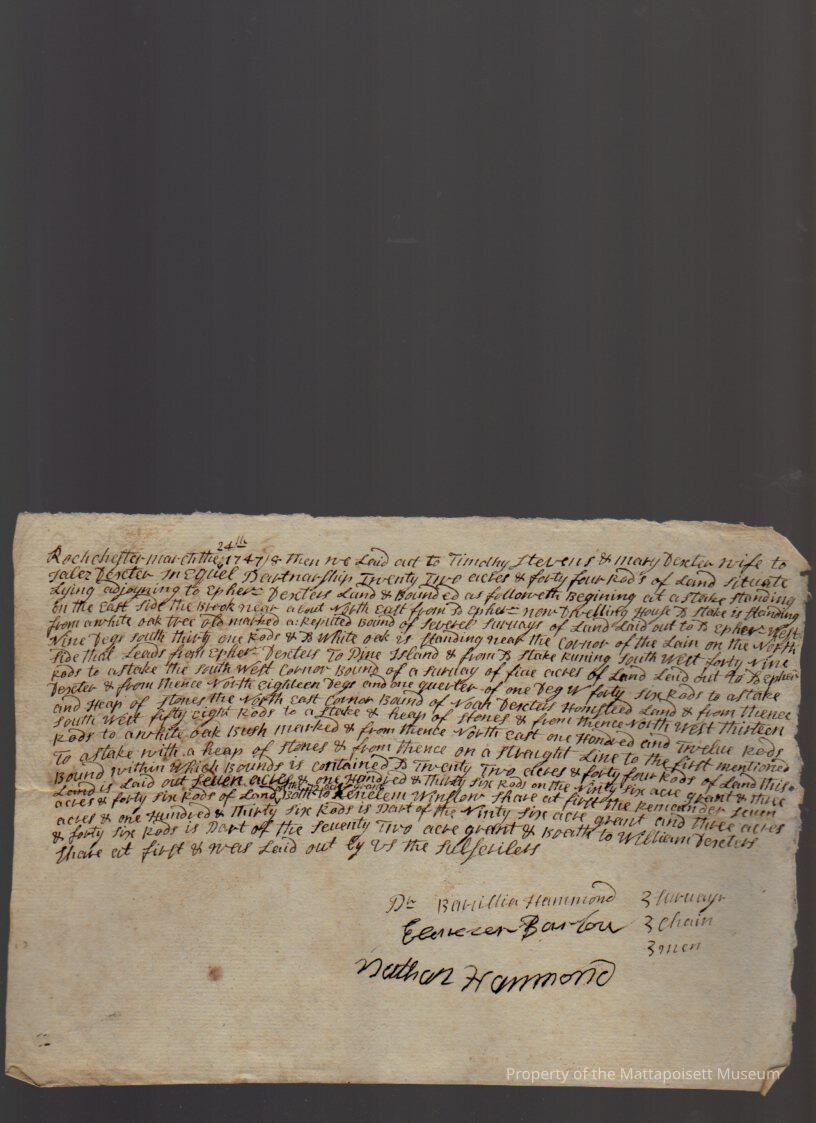 24th
Rochchester march the 1747/8 then we Laid out to Timothy Stevens & mary Dexter wife to
Jalez Dexter In Equel Partnarship Twenty Two acres & forty four Rods of Land Situate
Lying adjoyning to Epherm Dexters Land & Bounded as followeth Begining at a stake standing
on the East Side the Brook near about North East from D Epherm now Dwelling House D stake is standing
from a white oak tree old marked a Reputed Bound of Severel Survays of Land Laid out to D Epherm West
Nine Degs South thirty one Rods & D White oak is standing near the Cornor of the Lain on the North
Side that Leads from Epherm Dexters To Pine Island & from D stake Runing South West forty Nine
Rods to a stake the South West Cornor Bound of a Survay of five acres of Land Laid out to D Epherm
Dexter & from thence North eighteen Degs and one quarter of one Deg W forty Six Rods to a stake
and Heap of Stones the North East Cornor Bound of Noah Dexters Homsteed Land & from thence
South West fifty eight Rods to a stake & heap of Stones & from thence North West thirteen
Rods to a white oak Bush marked & from thence North East one Hundred and Twelve Rods
To a stake with a heap of stones & from thence on a straight Line to the first mentioned
Bound within Which Bounds is contained D Twenty Two acres & forty four Rods of Land this
Land is Laid out Seven acres & one Hundred & thirty Six Rods on the Ninty Six acre grant & three
acres & forty Six Rods of Land Boath to Kenelem Winslows Share at first the Remainder Seven
acres & one Hundred & thirty Six Rods is Part of the Ninty Six acre grant and three acres
& forty Six Rods is Part of the Seventy Two acre grant & Boath to William Dexters
Share at first & was Laid out by us the Subscribers
Pr Barzillia Hammond 3 survayr
Ebenezer Barlow 3 chain
Nathan Hammond 3 men
Property of the Mattapoisett Museum